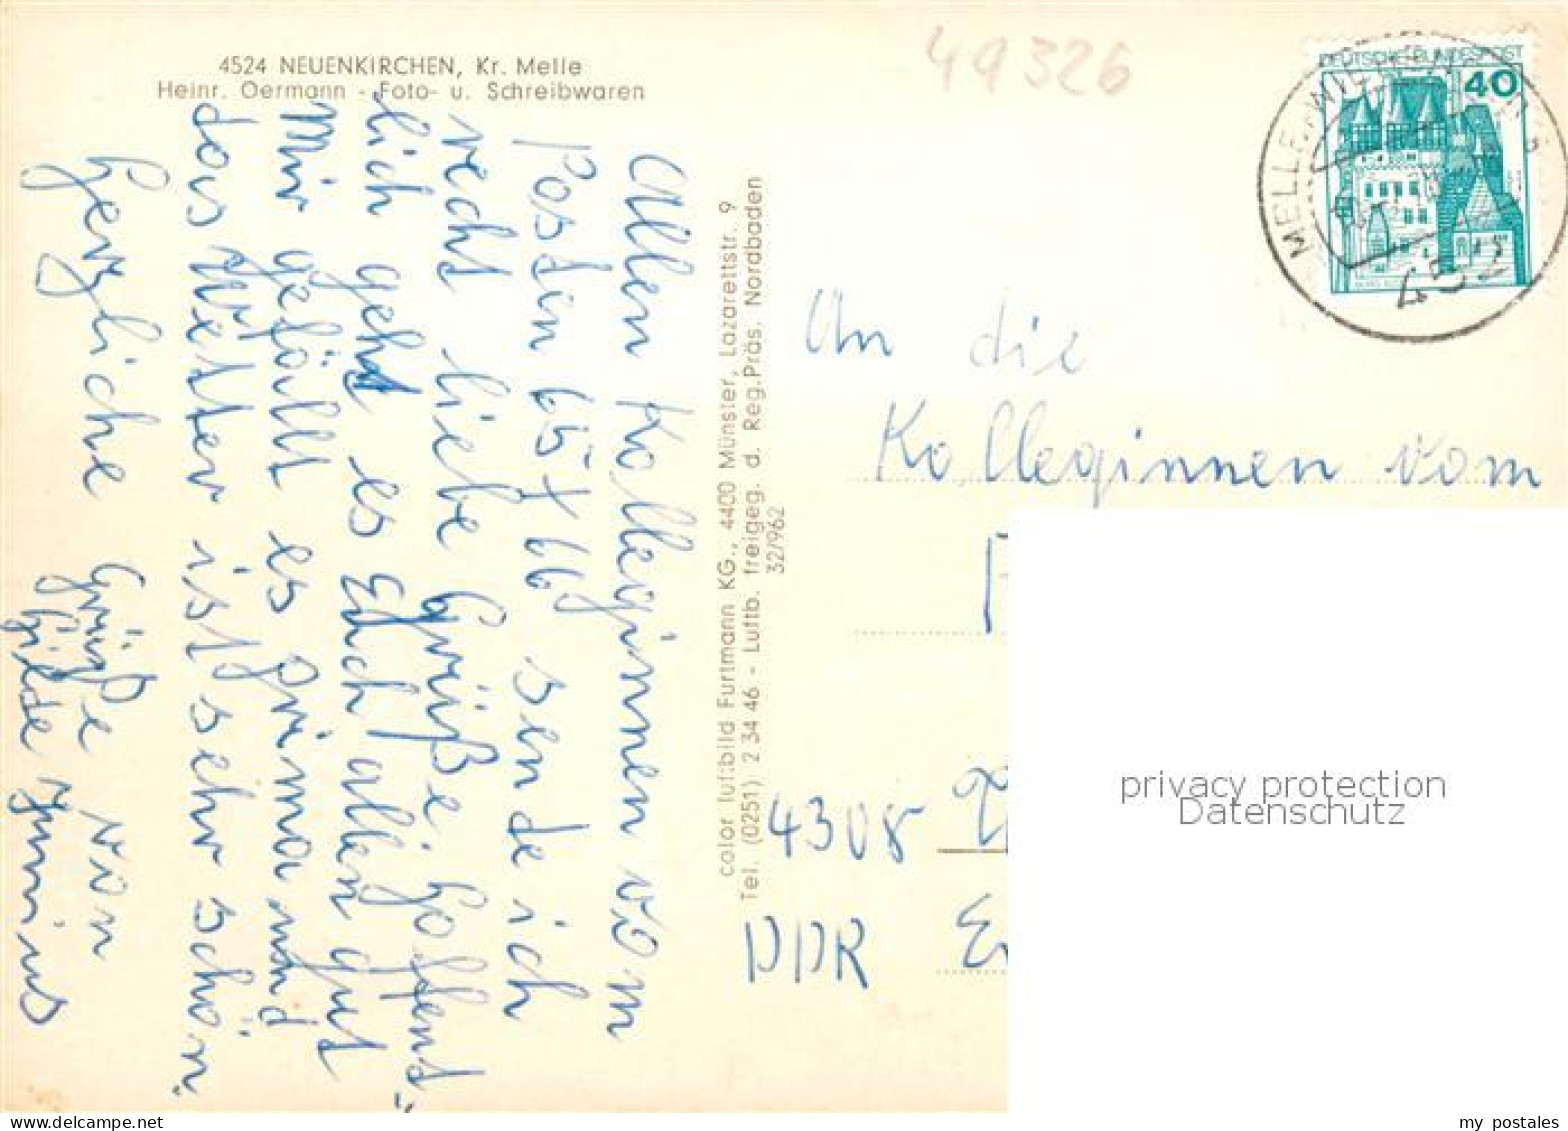 4524 NEUENKIRCHEN, Kr. Melle
Heinr. Oermann - Foto- u. Schreibwaren
49326
DEUTSCHE BUNDESPOST
40
MELLE
452
Allen Kolleginnen vom
Posten 65 + 66 sende ich
recht liebe Grüße. Hoffent-
lich geht es Euch allen gut
Mir gefällt es prima und
das Wetter ist sehr schön.
Herzliche Grüße von
Hilde
color luftbild Furtmann KG., 4400 Münster, Lazarettstr. 9
Tel. (0251) 2 34 46 - Luftb. freigeg. d. Reg.Präs. Nordbaden
32/962
An die
Kolleginnen vom
4308
DDR
privacy protection
Datenschutz
my postales